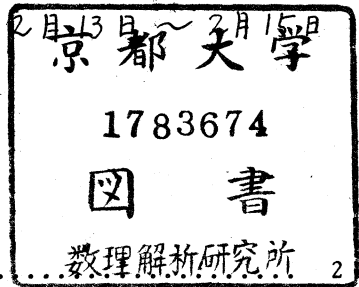 2月13日～2月15日
京都大学
1783674
図書
数理解析研究所
2